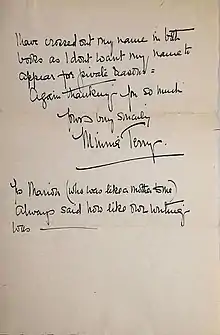 I have crossed out my name in both
books as I dont want my name to
appear for private reasons =
Again thanking you so much
Yours very sincerely
"Minnie" Terry.
To Marion (who was like a mother to me)
always said how like our writing
was